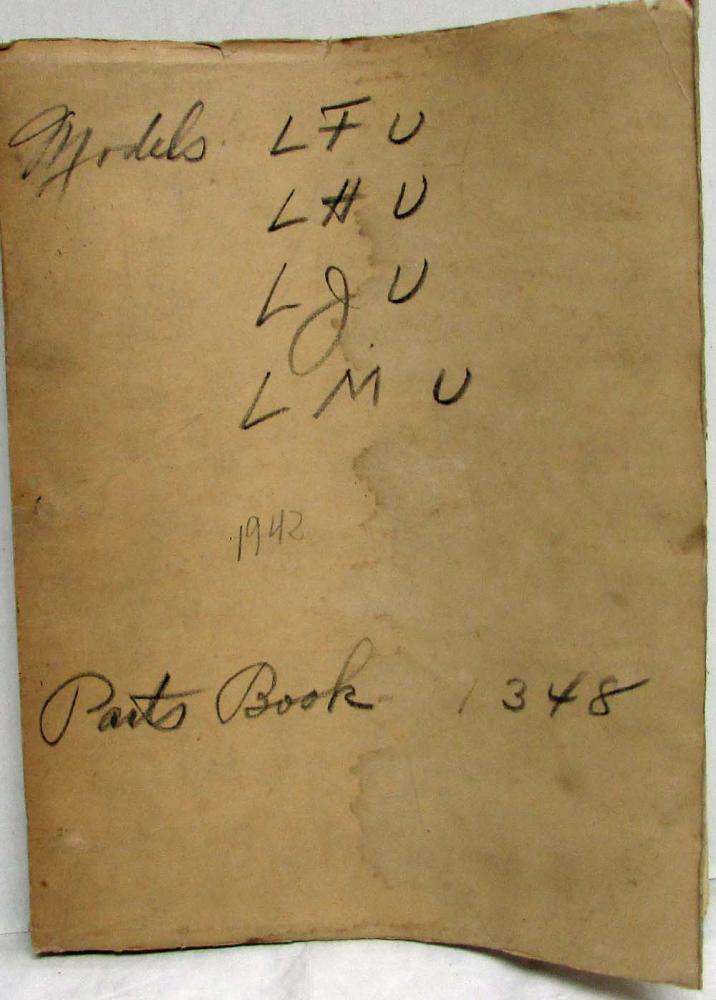 Models LFU
LHU
LJU
LMU
1942
Parts Book 1348